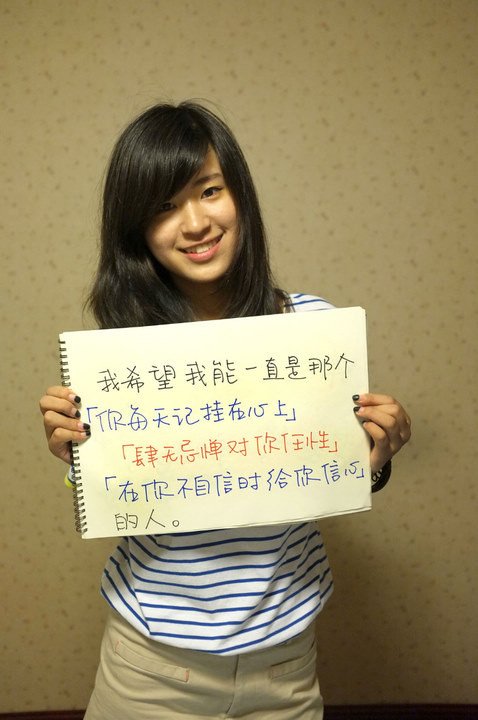 我希望我能一直是那个
「你每天记挂在心上」
「肆无忌惮对你任性」
「在你不自信时给你信心」
的人。